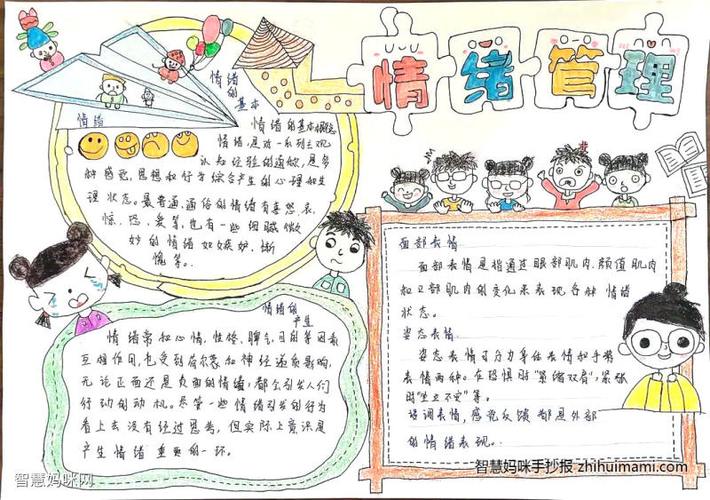 情绪管理
情绪
的
基本
情绪
情绪的基本概念
情绪,是对一系列主观
认知经验的通称,是多
种感觉,思想和行为综合产生的心理和生
理状态。最普遍,通俗的情绪有喜怒哀、
惊、恐、爱等,也有一些细腻微
妙的情绪如嫉妒,惭
愧等。
情绪的
产生
情绪常和心情,性格、脾气,目的等因素
互相作用,也受到荷尔蒙和神经递质影响,
无论正面还是负面的情绪,都会引发人们
行动的动机。尽管一些情绪引发的行为
看上去没有经过思考,但实际上意识是
产生情绪重要的一环。
面部表情
面部表情是指通过眼部肌肉,颜值肌肉
和口部肌肉的变化来表现各种情绪
状态。
姿态表情
姿态表情可分为身体表情和手势
表情两种。在恐惧时"紧缩双肩",紧张
时"坐立不安"等。
语调表情,感觉反馈都是外部
的情绪表现。
智慧妈咪网
智慧妈咪手抄报 zhihuimami.com